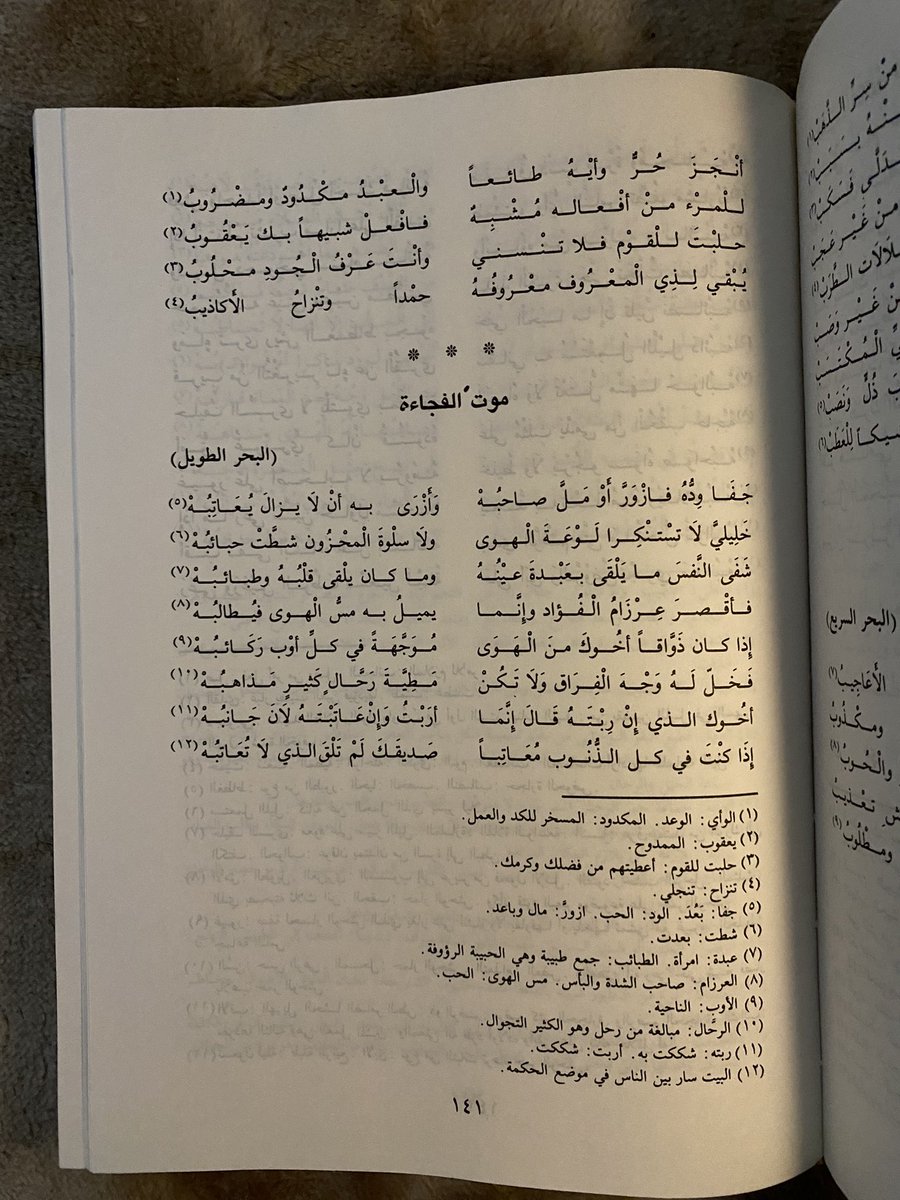 أنْجَزَ حُرٌّ وأيْهُ طائعاً والْعبْدُ مكْدُودٌ ومضْرُوبُ(١)
للْمرْء منْ أفْعاله مُشْبِهٌ فافْعلْ شبيهاً بك يَعْقُوبُ(٢)
حلبْتَ للْقوْم فلا تنْسني وأنْتَ عَرْفُ الْجُودِ محْلُوبُ(٣)
يُبْقي لِذِي الْمعْرُوف معْرُوفُهُ حمْداً وتنْزاحُ الأكاذيبُ(٤)
* * *
موتُ الفجاءة
(البحر الطويل)
جَفَا وِدُّهُ فازْوَرَّ أَوْ مَلَّ صاحبُهْ وَأَزْرَى به أنْ لَا يزالَ يُعَاتِبُهْ(٥)
خَلِيليَّ لَا تسْتنْكِرا لَوْعَةَ الْهوى ولَا سلْوةَ الْمحْزُون شطَّتْ حبائبُهْ(٦)
شَفَى النَّفسَ ما يَلْقَى بعَبْدةَ عيْنُهُ وما كان يلْقى قلْبُهُ وطبائبُهْ(٧)
فأقْصرَ عِرْزَامُ الْفُؤاد وإنَّما يميلُ به مسُّ الْهوى فيُطالبُهْ(٨)
إِذا كان ذَوَّاقاً أخُوكَ منَ الْهَوَى مُوَجَّهَةً في كلِّ أوْب رَكَائبُهْ(٩)
فَخَلّ لَهُ وَجْهَ الْفِرَاق وَلَا تَكُنْ مَطِيَّةَ رَحَّالٍ كَثيرٍ مَذاهبُهْ(١٠)
أخُوك الذي إنْ رِبْتَهُ قَالَ إنَّمَا أرَبْتُ وَإنْ عَاتَبْتَهُ لَانَ جَانبُهْ(١١)
إِذَا كنْتَ في كل الذُّنُوب مُعَاتِباً صَديقَكَ لَمْ تَلْقَ الذي لَا تُعَاتبُهْ(١٢)
(١) الوأي: الوعد. المكدود: المسخر للكد والعمل.
(٢) يعقوب: الممدوح.
(٣) حلبت للقوم: أعطيتهم من فضلك وكرمك.
(٤) تنزاح: تنجلي.
(٥) جفا: بَعُدَ. الود: الحب. ازورَّ: مال وباعد.
(٦) شطت: بعدت.
(٧) عبدة: امرأة. الطبائب: جمع طبيبة وهي الحبيبة الرؤوفة.
(٨) العرزام: صاحب الشدة والبأس. مس الهوى: الحب.
(٩) الأوب: الناحية.
(١٠) الرحَّال: مبالغة من رحل وهو الكثير التجوال.
(١١) ربته: شككت به. أربت: شككت.
(١٢) البيت سار بين الناس في موضع الحكمة.
١٤١
منْ سِرِّ اللُّعَبْ(١)
فَسَكَبْ(٣)
منْ غَيْرِ عَجَبْ
الطُّرَبْ
غَيْر وَصَبْ
الْمُكْتَسَبْ
ذُلٍّ وَنَصَبْ(٥)
لِلْعَطَبْ(٦)
(البحر السريع)
الأَعَاجِيبُ(٧)
ومكْذُوبُ
والْحُوبُ(٨)
تعْذيبُ
ومطْلُوبُ(٩)